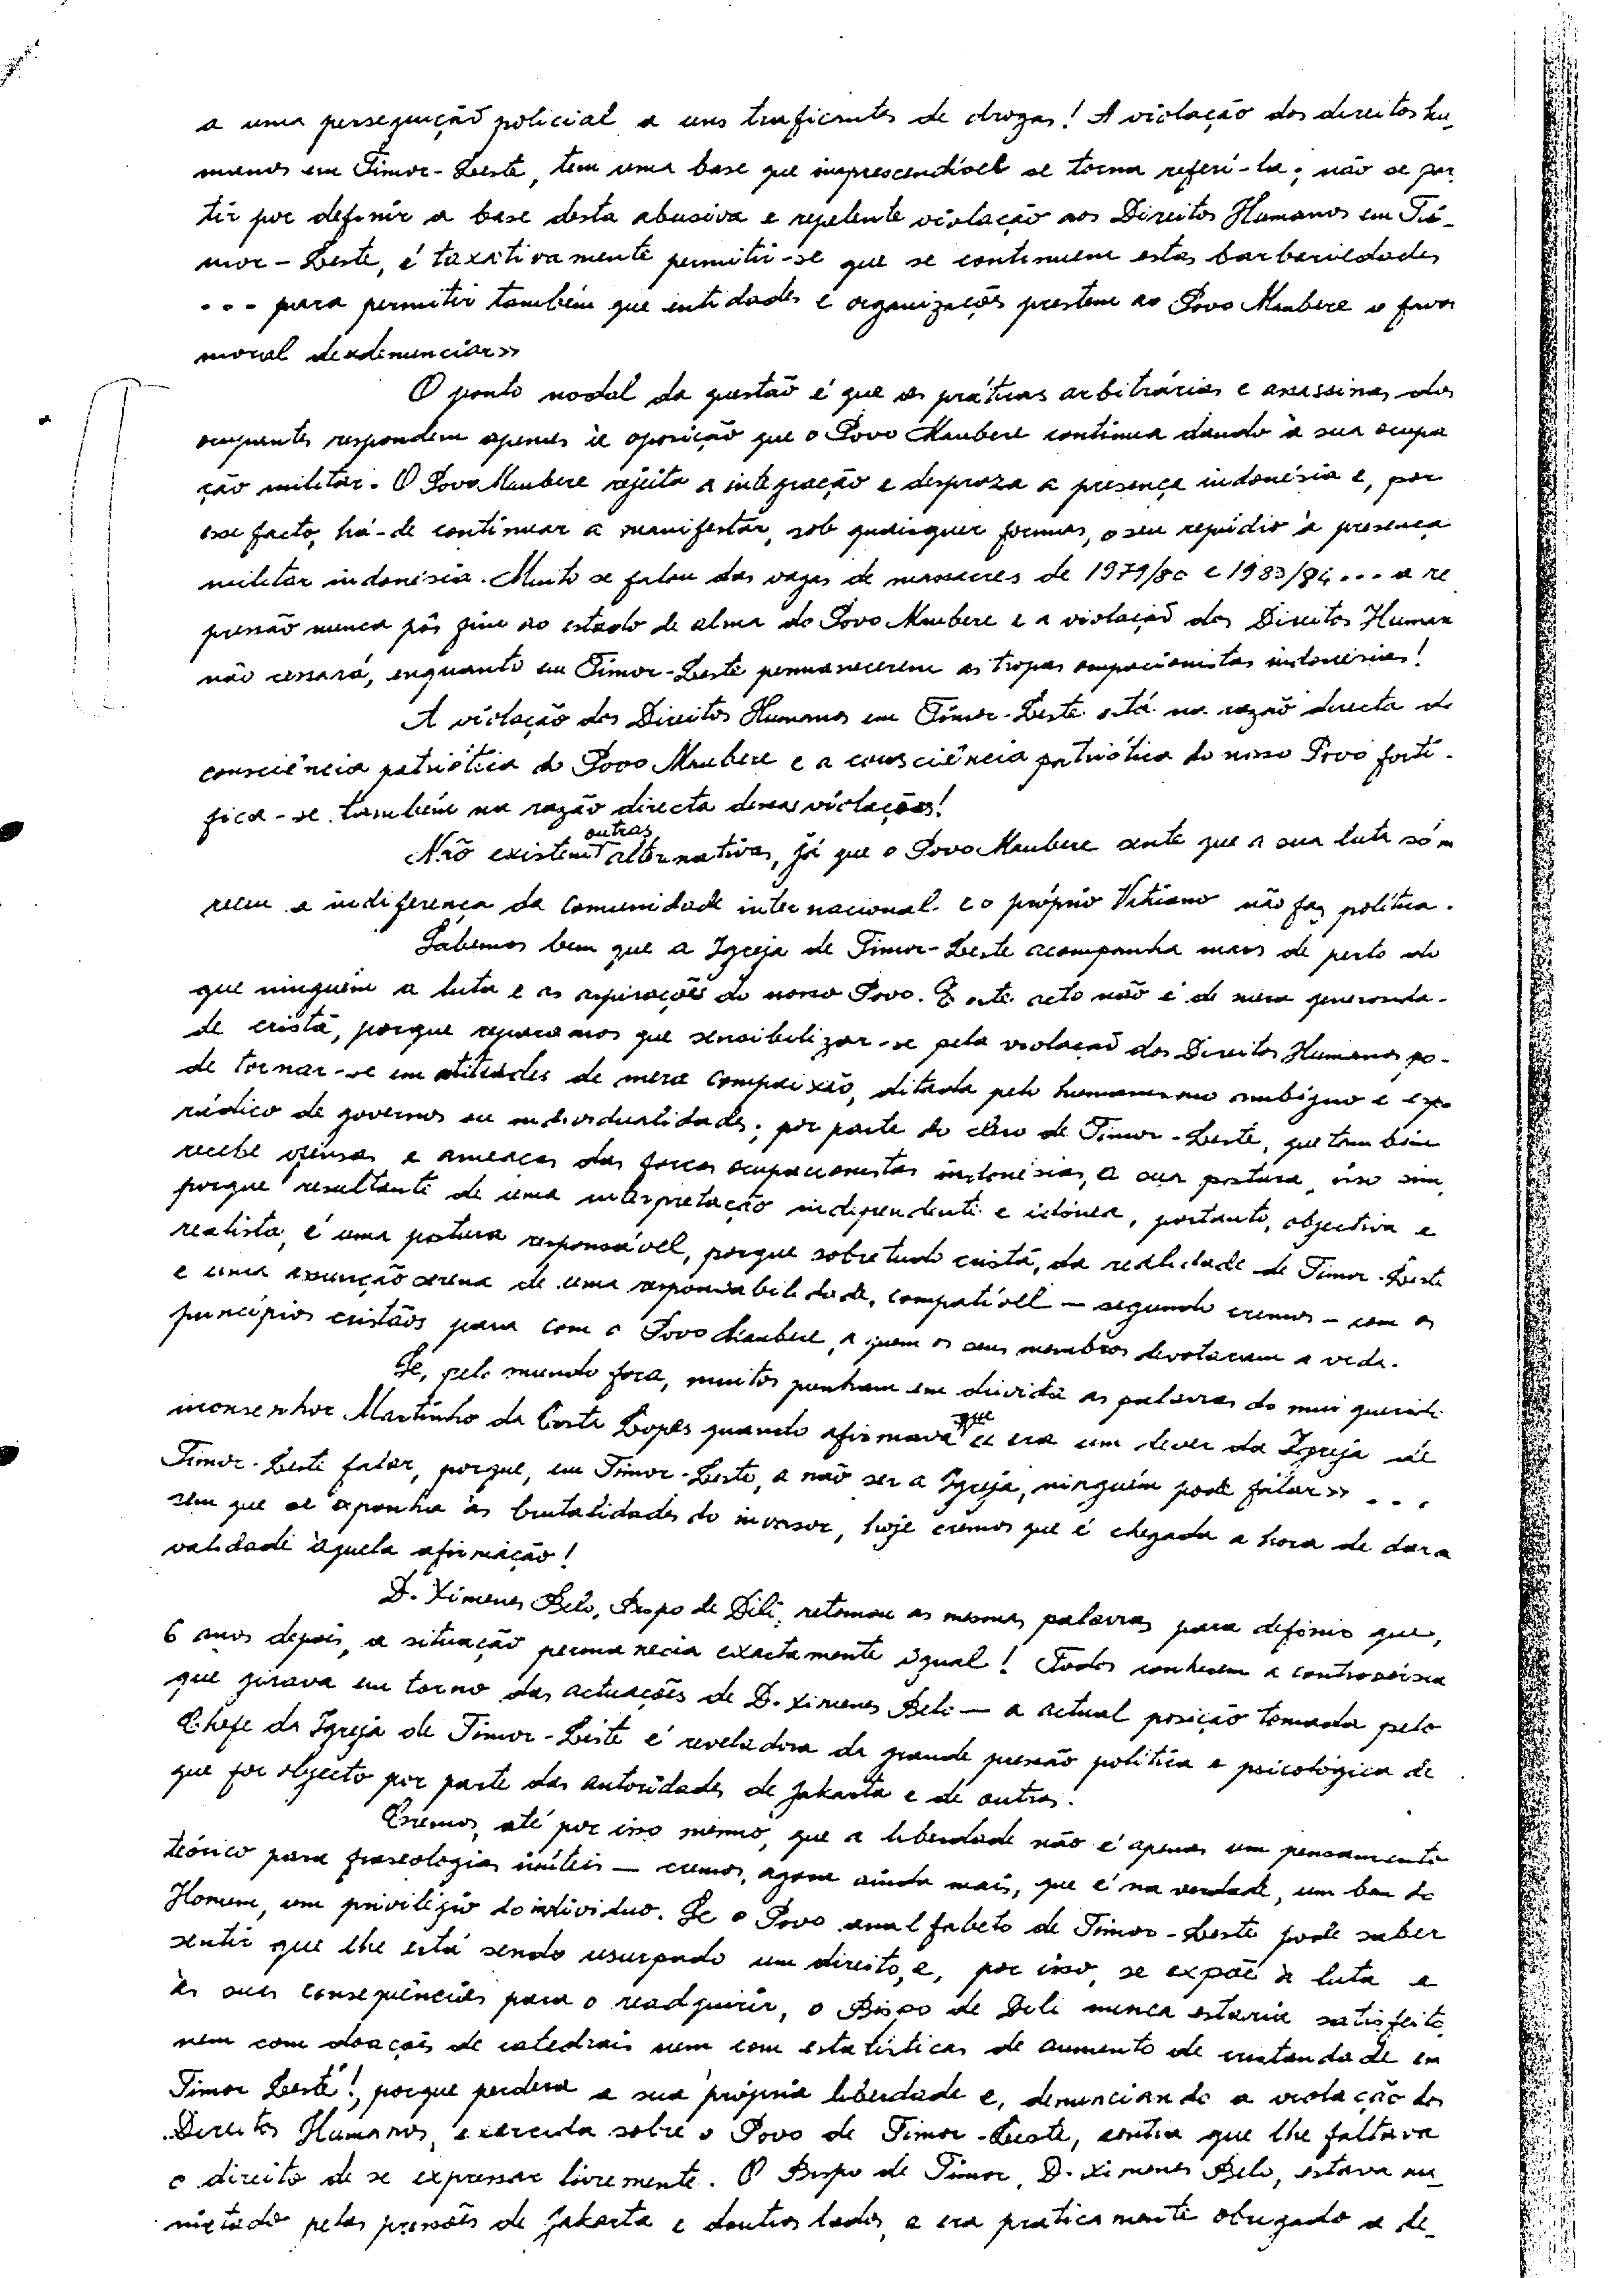 a uma perseguição policial a uns traficantes de drogas! A violação dos direitos hu-
manos em Timor-Leste, tem uma base que imprescendível se torna referí-la; não se par
tir por definir a base desta abusiva e repelente violação aos Direitos Humanos em Ti-
mor-Leste, é taxativamente permitir-se que se continuem estas barbariedades
... para permitir também que entidades e organizações prestem ao Povo Maubere o favor
moral de «denunciar»
O ponto nodal da questão é que as práticas arbitrárias e assassinas dos
ocupantes respondem apenas à oposição que o Povo Maubere continua dando à sua ocupa
ção militar. O Povo Maubere rejeita a integração e despreza a presença indonésia e, por
esse facto, há-de continuar a manifestar, sob quaisquer formas, o seu repúdio à presença
militar indonésia. Muito se falou das vagas de massacres de 1979/80 e 1983/84... a re
pressão nunca pôs fim ao estado de alma do Povo Maubere e a violação dos Direitos Human
não cessará, enquanto em Timor-Leste permanecerem as tropas ocupacionistas indonésias!
A violação dos Direitos Humanos em Timor-Leste está na razão directa da
consciência patriótica do Povo Maubere e a consciência patriótica do nosso Povo forti-
fica-se também na razão directa dessas violações!
Não existem outras alternativas, já que o Povo Maubere sente que a sua luta só m
receu a indiferença da comunidade internacional e o próprio Vaticano não faz política.
Sabemos bem que a Igreja de Timor-Leste acompanha mais de perto do
que ninguém a luta e as aspirações do nosso Povo. E este acto não é de mera generosida-
de cristã, porque reparamos que sensibilizar-se pela violação dos Direitos Humanos po-
de tornar-se em atitudes de mera compaixão, ditada pelo humanismo ambíguo e espo
rádico de governos ou individualidades; por parte do clero de Timor-Leste, que também
recebe ofensas e ameaças das forças ocupacionistas indonésias, a sua postura, isso sim,
porque resultante de uma interpretação independente e idónea, portanto, objectiva e
realista, é uma postura responsável, porque sobretudo cristã, da realidade de Timor-Leste
e uma assunção serena de uma responsabilidade, compatível - segundo cremos - com os
princípios cristãos para com o Povo Maubere, a quem os seus membros devotaram a vida.
Se, pelo mundo fora, muitos punham em dúvida as palavras do mui querido
monsenhor Martinho da Costa Lopes quando afirmava que «era um dever da Igreja de
Timor-Leste falar, porque, em Timor-Leste, a não ser a Igreja, ninguém pode falar» ...
sem que se exponha às brutalidades do invasor, hoje cremos que é chegada a hora de dar a
validade àquela afirmação!
D. Ximenes Belo, Bispo de Dili, retomou as mesmas palavras para definir que,
6 anos depois, a situação permanecia exactamente igual! Todos conhecem a controvérsia
que girava em torno das actuações de D. Ximenes Belo — a actual posição tomada pelo
Chefe da Igreja de Timor-Leste é reveladora da grande pressão política e psicológica de
que foi objecto por parte das autoridades de Jakarta e de outros.
Cremos, até por isso mesmo, que a liberdade não é apenas um pensamento
teórico para fraseologias inúteis — cremos, agora ainda mais, que é na verdade, um bem do
Homem, um privilégio do indivíduo. Se o Povo analfabeto de Timor-Leste pode saber
sentir que lhe está sendo usurpado um direito, e, por isso, se expõe à luta e
às suas consequências para o readquirir, o Bispo de Dili nunca estaria satisfeito,
nem com doações de catedrais nem com estatísticas de aumento de cristandade em
Timor Leste!, porque perdera a sua própria liberdade e, denunciando a violação dos
Direitos Humanos, exercida sobre o Povo de Timor-Leste, sentia que lhe faltava
o direito de se expressar livremente. O Bispo de Timor, D. Ximenes Belo, estava ma-
nietado pelas pressões de Jakarta e doutros lados, e era praticamente obrigado a de-